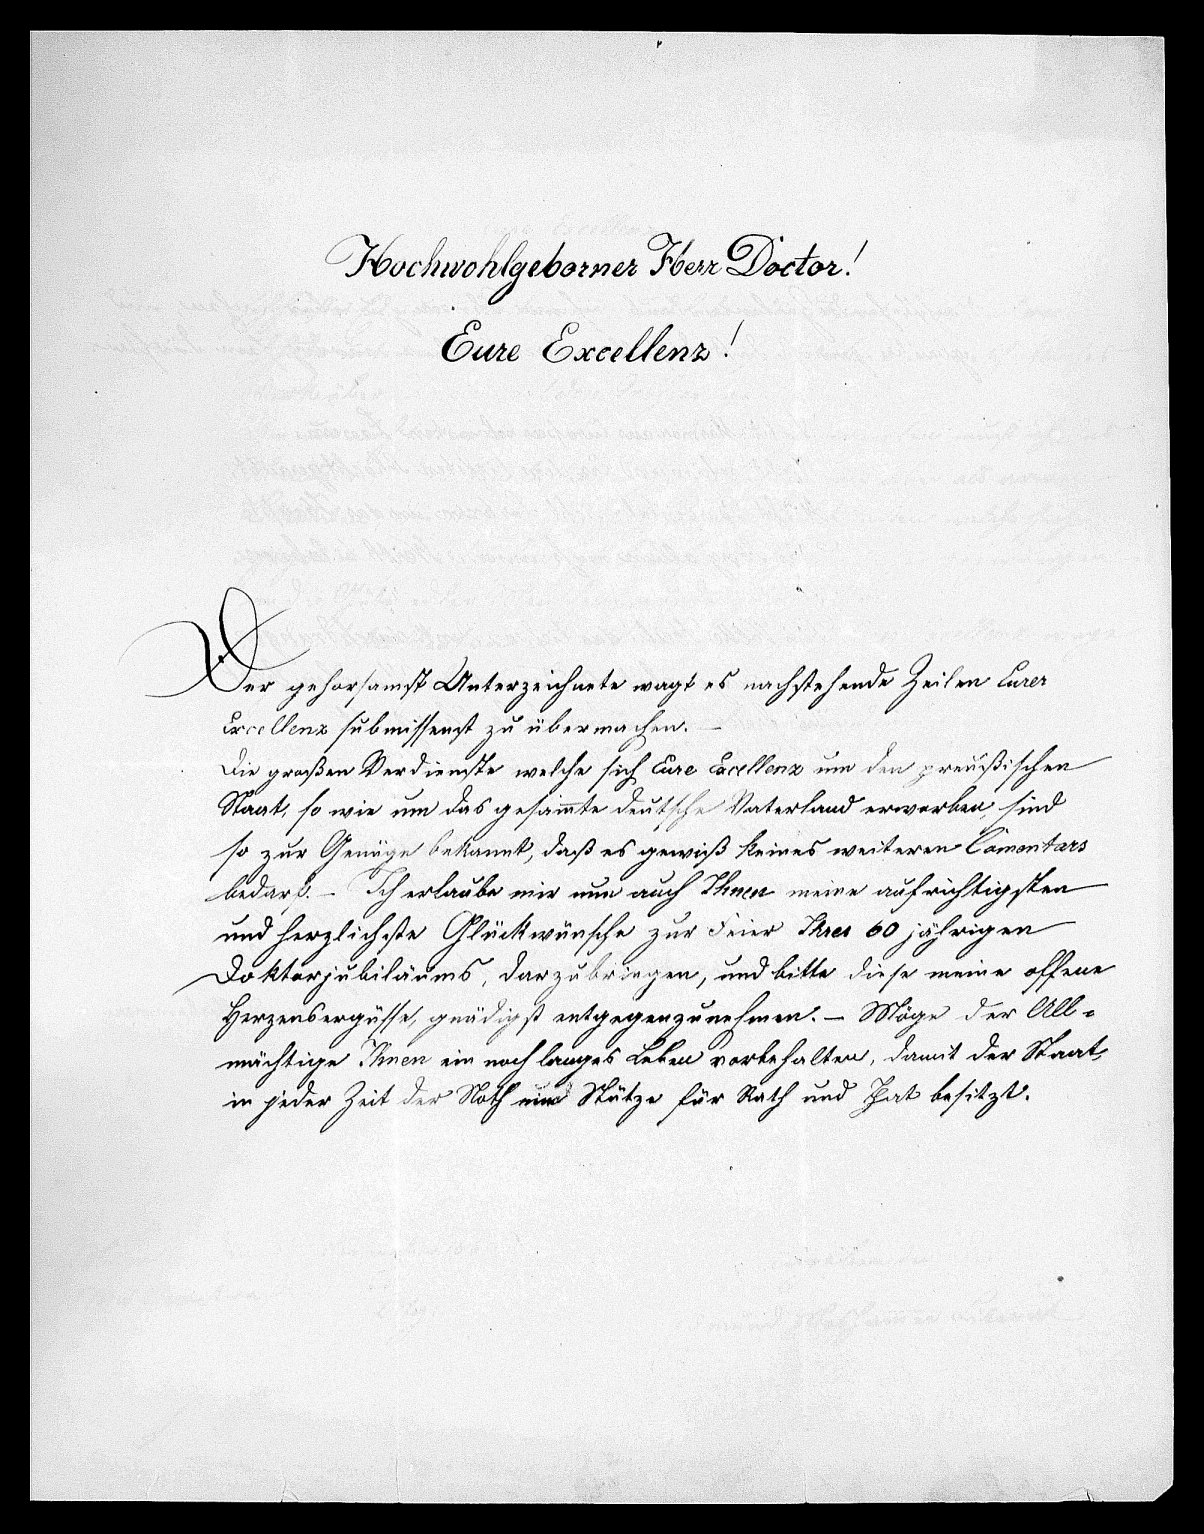 Hochwohlgeborner Herr Doctor!
Eure Excellenz!
Der gehorsamst Unterzeichnete wagt es nachstehende Zeilen Eurer
Excellenz submissenst zu übermachen. —
Die großen Verdienste welche sich Eure Excellenz um den preußischen
Staat, so wie um das gesam̅te deutsche Vaterland erworben, sind
so zur Genüge bekannt, daß es gewiß keines weiteren Com̅entars
bedarf. — Ich erlaube mir nun auch Ihnen meine aufrichtigsten
und herzlichste Glückwünsche zur Feier Ihres 60 jährigen
Doktorjubiläums, darzubringen, und bitte diese meine offene
Herzensergüsse, gnädigst entgegenzunehmen. — Möge der All-
mächtige Ihnen ein noch langes Leben vorbehalten, damit der Staat,
in jeder Zeit der Noth eine Stütze für Rath und That besitzt.